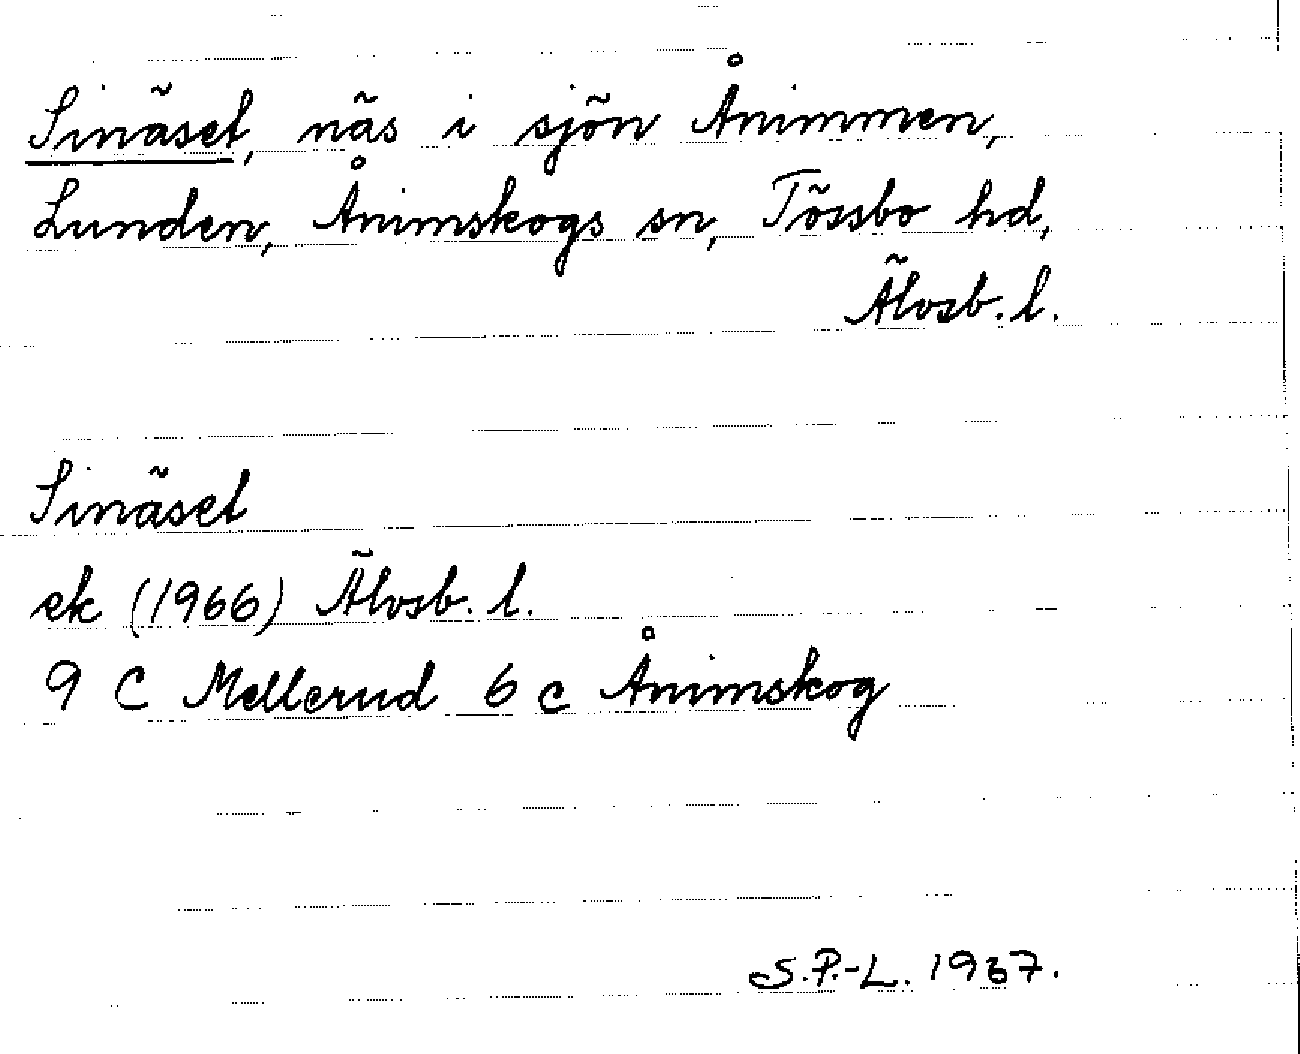 Sinäset, näs i sjön Ånimmen,
Lunden, Ånimskogs sn, Tössbo hd,
Älvsb. l.
Sinäset
ek (1966) Älvsb. l.
9 C Mellerud 6 c Ånimskog
S.P.-L. 1967.